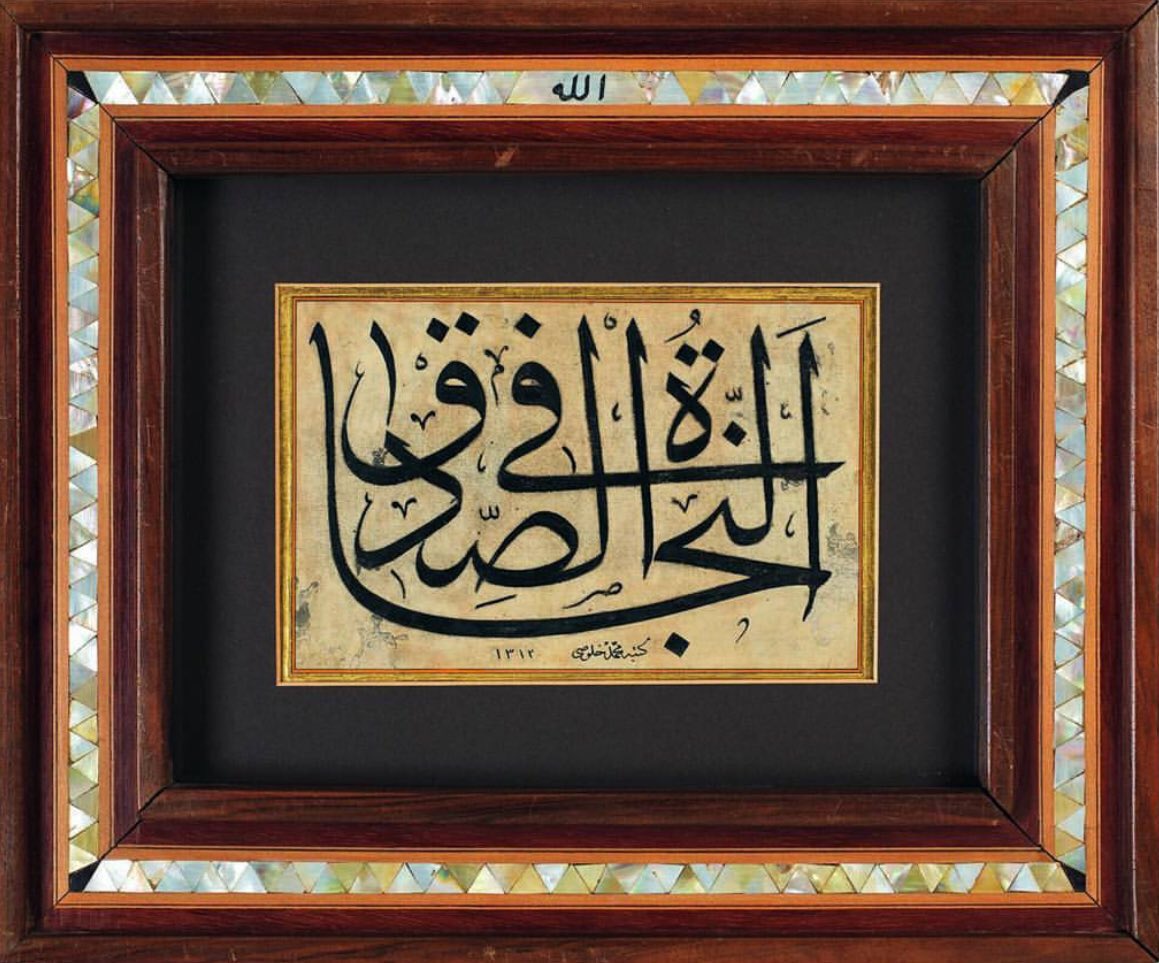 الله
النجاة في الصدق
كتبه محمد خلوصي ١٣١٢